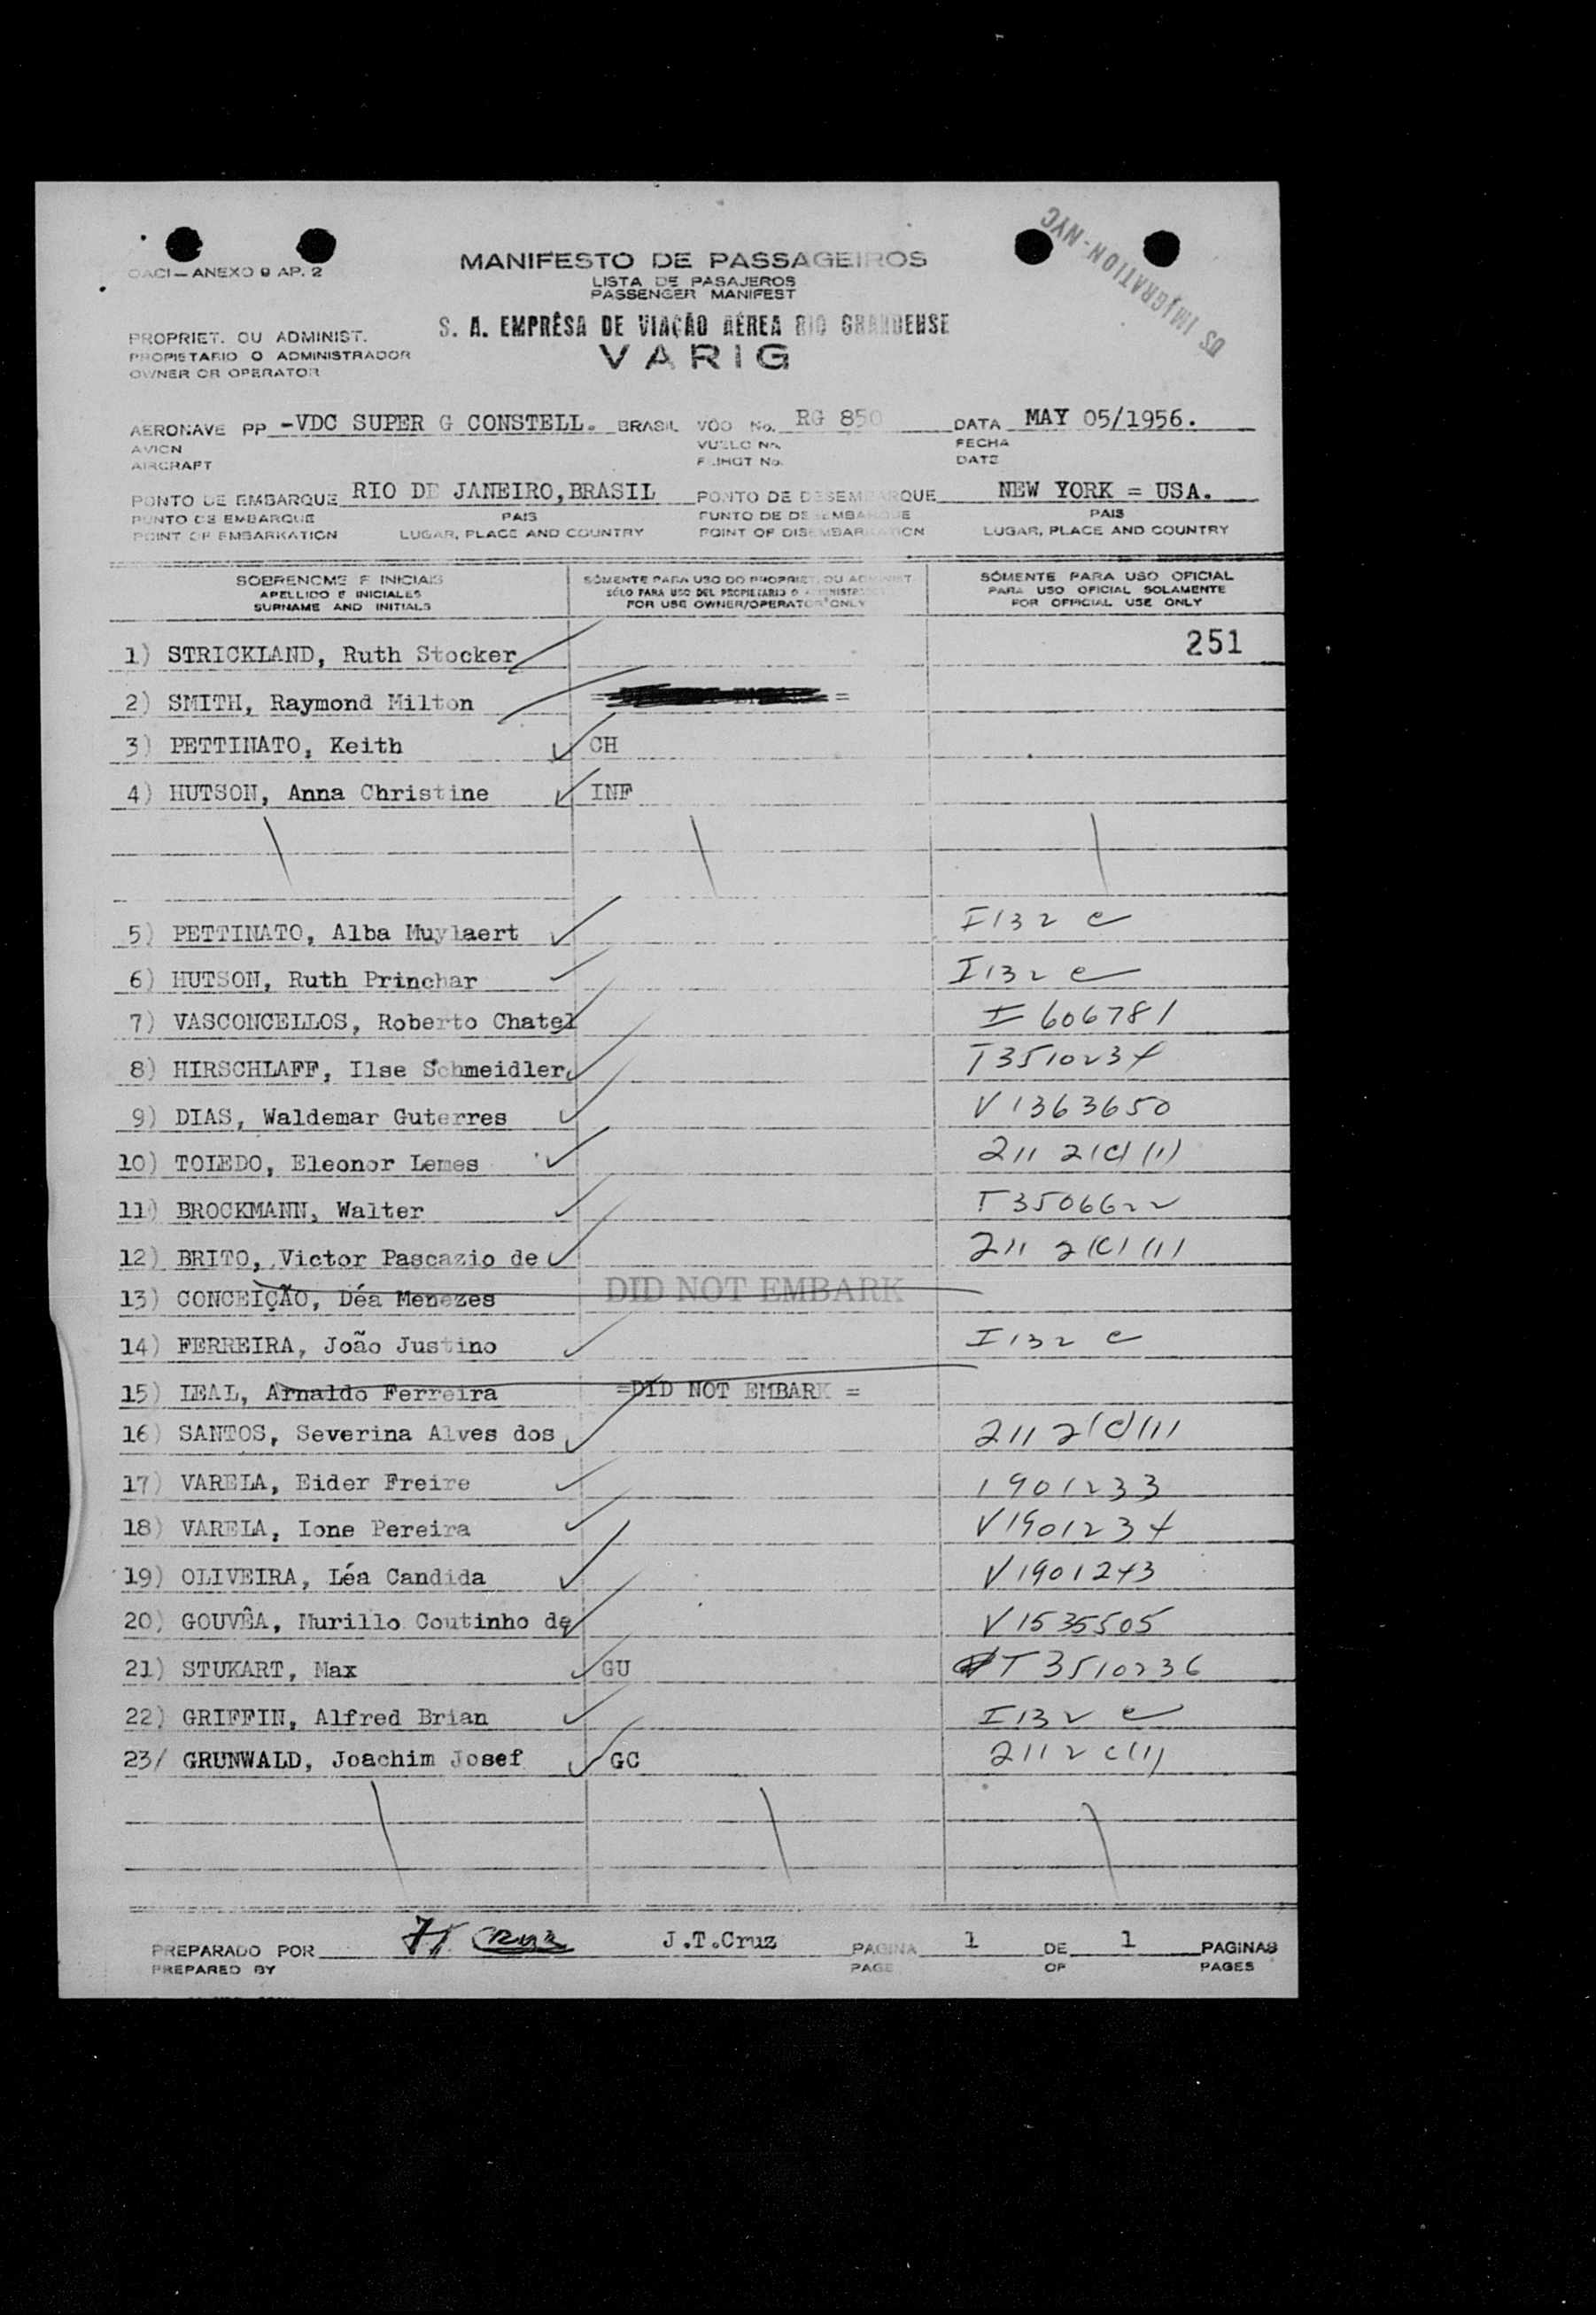 US IMMIGRATION-NYC
OACI — ANEXO 9 AP. 2
MANIFESTO DE PASSAGEIROS
LISTA DE PASAJEROS
PASSENGER MANIFEST
PROPRIET. OU ADMINIST.
PROPIETARIO O ADMINISTRADOR
OWNER OR OPERATOR
S. A. EMPRÊSA DE VIAÇÃO AÉREA RIO GRANDENSE
VARIG
AERONAVE PP -VDC SUPER G CONSTELL. BRASIL VÔO No. RG 850 DATA MAY 05/1956.
AVION VUELO No. FECHA
AIRCRAFT FLIHGT No. DATE
PONTO DE EMBARQUE RIO DE JANEIRO, BRASIL PONTO DE DESEMBARQUE NEW YORK = USA.
PUNTO DE EMBARQUE PAIS PUNTO DE DESEMBARQUE PAIS
POINT OF EMBARKATION LUGAR, PLACE AND COUNTRY POINT OF DISEMBARKATION LUGAR, PLACE AND COUNTRY
SOBRENOME E INICIAIS SÓMENTE PARA USO DO PROPRIET. OU ADMINIST. SÓMENTE PARA USO OFICIAL
APELLIDO E INICIALES SÓLO PARA USO DEL PROPIETARIO O ADMINISTRADOR PARA USO OFICIAL SOLAMENTE
SURNAME AND INITIALS FOR USE OWNER/OPERATOR ONLY FOR OFFICIAL USE ONLY
1) STRICKLAND, Ruth Stocker 251
2) SMITH, Raymond Milton = =
3) PETTINATO, Keith CH
4) HUTSON, Anna Christine INF
5) PETTINATO, Alba Muylaert I132 e
6) HUTSON, Ruth Princhar I132 e
7) VASCONCELLOS, Roberto Chatel I 606781
8) HIRSCHLAFF, Ilse Schmeidler T3510234
9) DIAS, Waldemar Guterres V1363650
10) TOLEDO, Eleonor Lemes 211 2(c)(1)
11) BROCKMANN, Walter T3506622
12) BRITO, Victor Pascazio de 211 2(c)(1)
13) CONCEIÇÃO, Déa Menezes DID NOT EMBARK
14) FERREIRA, João Justino I132 e
15) LEAL, Arnaldo Ferreira =DID NOT EMBARK =
16) SANTOS, Severina Alves dos 211 2(c)(1)
17) VARELA, Eider Freire 1901233
18) VARELA, Ione Pereira V1901234
19) OLIVEIRA, Léa Candida V1901243
20) GOUVÊA, Murillo Coutinho de V1535505
21) STUKART, Max GU T3510236
22) GRIFFIN, Alfred Brian I132 e
23/ GRUNWALD, Joachim Josef GC 211 2 c(1)
PREPARADO POR JT Cruz J.T.Cruz PAGINA 1 DE 1 PAGINAS
PREPARED BY PAGE OF PAGES